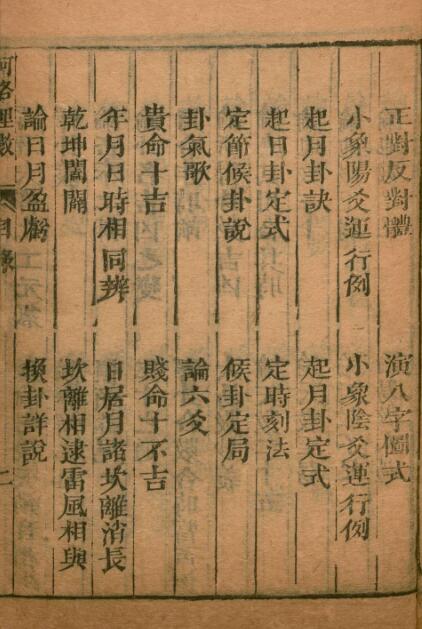 正對反對體　演八字圖式
小象陽爻運行例　小象陰爻運行例
起月卦訣　起月卦定式
起日卦定式　定時刻法
定節候卦說　候卦定局
卦氣歌　論六爻
貴命十吉　賤命十不吉
年月日時相同辨　日居月諸坎離消長
乾坤闔闢　坎離相逮雷風相與
論日月盈虧　換卦詳說
河洛理數　目錄　二